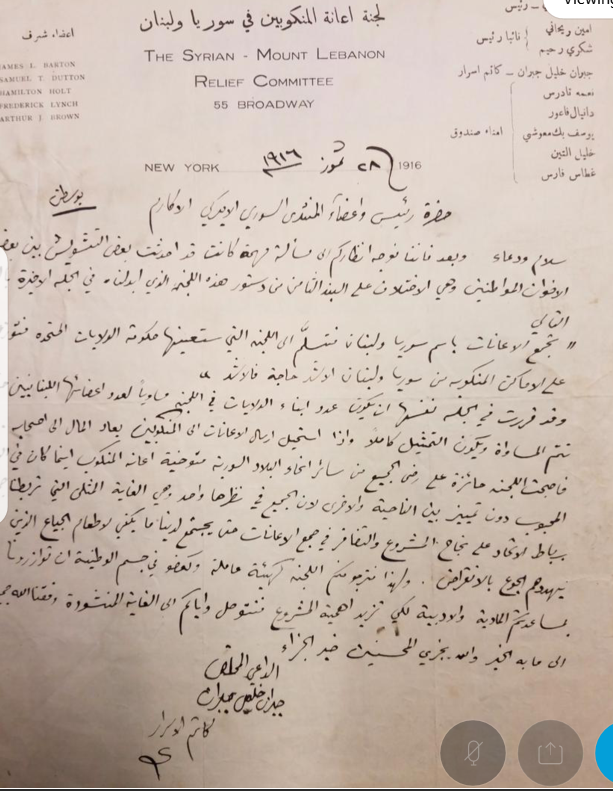 Viewing
لجنة اعانة المنكوبين في سوريا ولبنان
THE SYRIAN - MOUNT LEBANON
RELIEF COMMITTEE
55 BROADWAY
اعضاء شرف
JAMES L. BARTON
SAMUEL T. DUTTON
HAMILTON HOLT
FREDERICK LYNCH
ARTHUR J. BROWN
ـ رئيس
امين ريحاني
شكري رحيم
نائبا رئيس
جبران خليل جبران ــ كاتم اسرار
نعمه تادرس
دانيال فاعور
يوسف بك معوشي
خليل التين
غطاس فارس
امناء صندوق
NEW YORK ٢٨ تموز ١٩١٦ 1916
بوسطن
حضرة رئيس واعضاء المنتدى السوري الاميركي الاكارم
سلام ودعاء وبعد فاننا نوجه انظاركم الى مسألة مهمة كانت قد احدثت بعض التشويش بين بعض
الاخوان المواطنين وهي الاختلاف على البند الثامن من دستور هذه اللجنة الذي ابدلناه في الجلسة الاخيرة
التالي
" تجمع الاعانات باسم سوريا ولبنان فتسلّم الى اللجنة التي ستعينها حكومة الولايات المتحدة
على الاماكن المنكوبه من سوريا ولبنان الاشد حاجة فالاشد "
وقد قررت في الجلسة نفسها ان يكون عدد ابناء الولايات في اللجنة مساوياً لعدد اعضائها اللبنانيين
تتم المساواة ويكون التمثيل كاملاً واذا استحيل ارسال الاعانات الى المنكوبين يعاد المال الى اصحابه
فاصبحت اللجنة حائزة على رضى الجميع من سائر انحاء البلاد السورية متوخية اعانة المنكوب اينما كان في
المحبوب دون تمييز بين الناحية والاخرى لان الجميع في نظرها واحد وهي الغاية المثلى التي تربطنا
برباط الاتحاد على نجاح المشروع والتضافر في جمع الاعانات حتى يجتمع لدينا ما يكفي لاطعام الجياع الذين
يهددهم الجوع بالانقراض . ولهذا نرجوكم اللجنة كهيئة عاملة وكعضو في جسم الوطنية ان توازرونا
بمساعدتكم المادية والادبية لكي تزيد اهمية المشروع فنتوصل واياكم الى الغاية المنشودة وفقنا الله
الى ما به الخير والله يجزي المحسنين خير الجزاء
الداعي المخلص
جبران خليل جبران
كاتم الاسرار